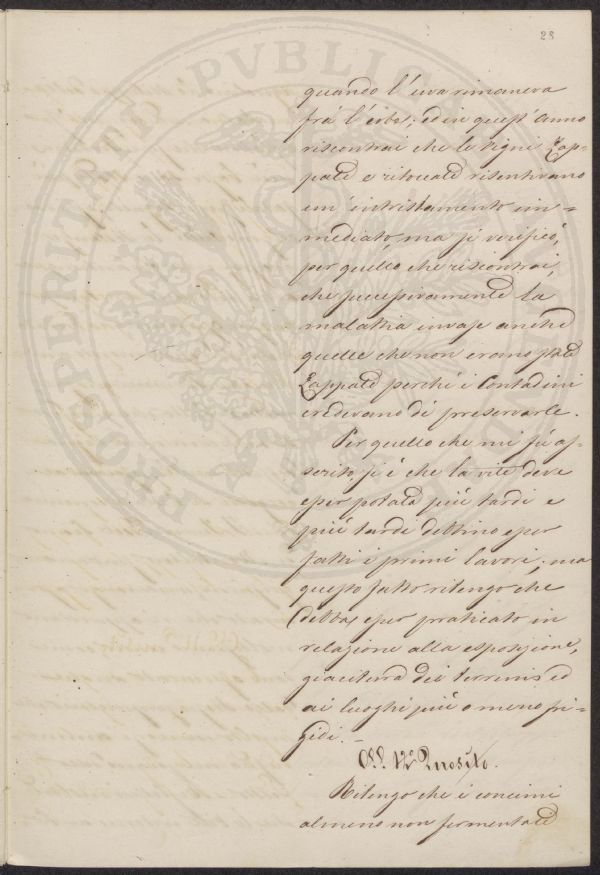 28
PROSPERITATI PVBLICAE
quando l'uva rimaneva
frà l'erba; ed in quest'anno
riscontrai che le vigne Zap-
pate e ritoccate risentivano
un' intristamento im-
mediato, ma si verificò,
per quello che riscontrai,
che successivamente la
malattia invase anche
quelle che non erano state
Zappate perché i Contadini
credevano di preservarle.
Per quello che mi fù as-
serito, si è che la vite deve
esser potata più tardi e
più tardi debbino esser
fatti i primi lavori; ma
questo fatto ritengo che
debba esser praticato in
relazione alla esposizione,
giacitura dei terreni ed
ai luoghi più o meno fri-
gidi. –
All. 12° Quesito.
Ritengo che i concimi
almeno non fermentati